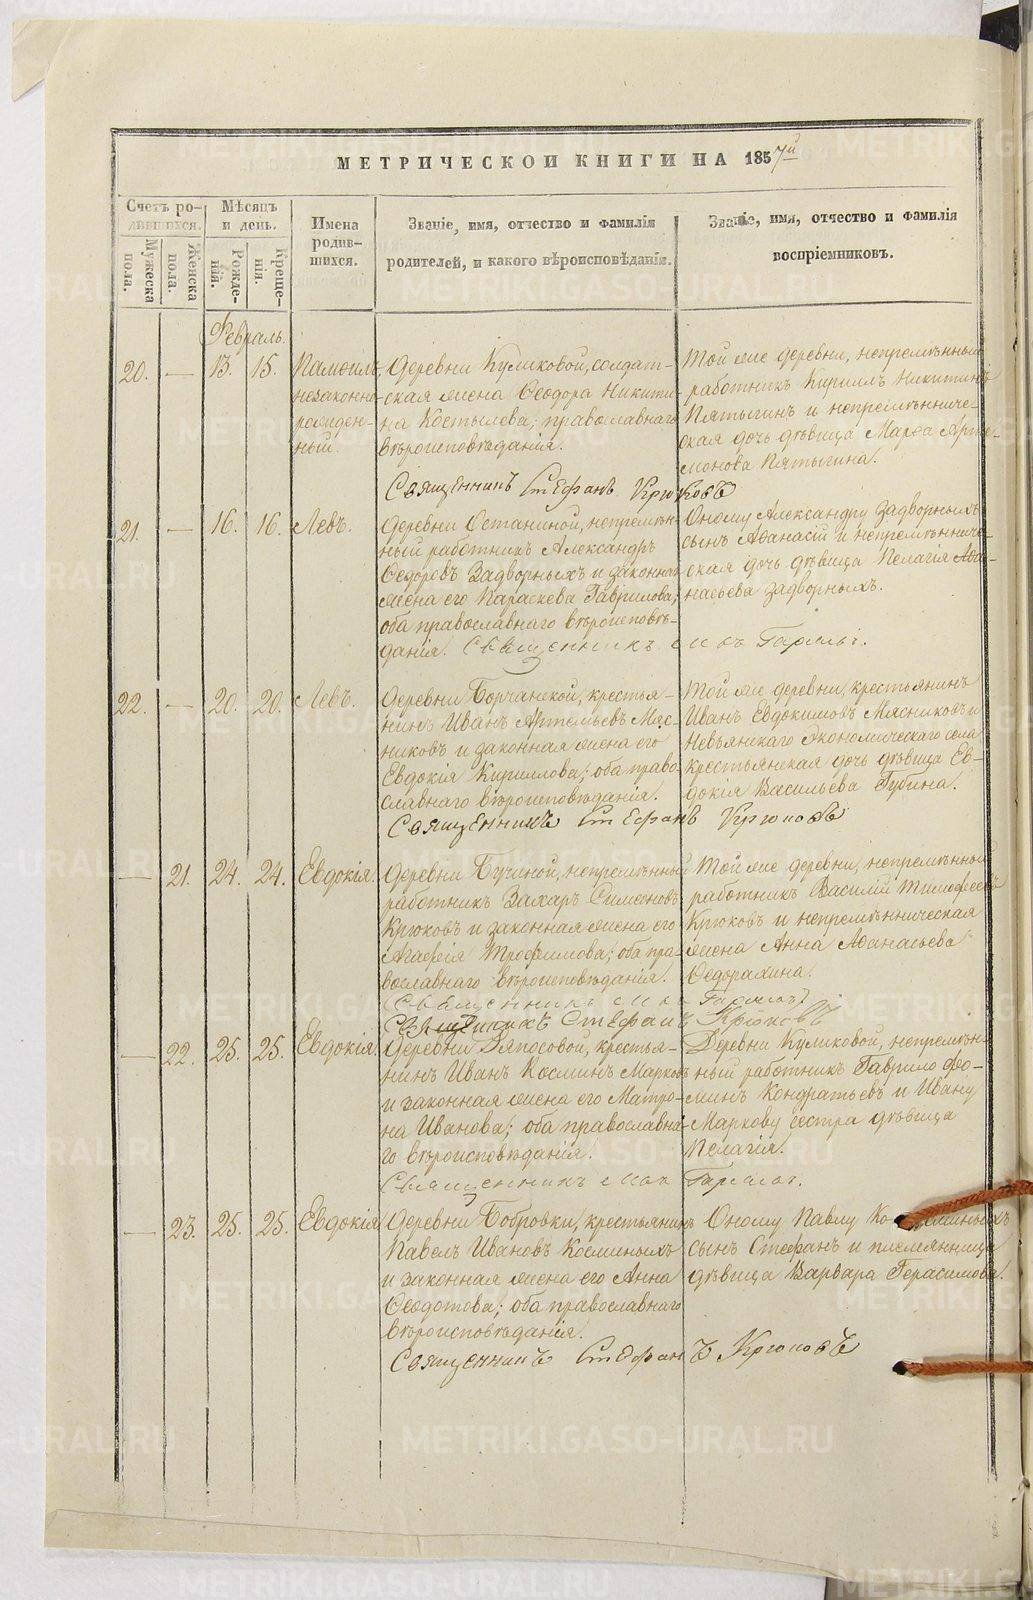 МЕТРИЧЕСКОЙ КНИГИ НА 1857й
Счетъ ро-
дившихся.
Мѣсяцъ
и день.
Мужеска
пола.
Женска
пола.
Рожде-
нія.
Креще-
нія.
Имена
родив-
шихся.
Званіе, имя, отчество и фамилія
родителей, и какого вѣроисповѣданія.
Званіе, имя, отчество и фамилія
воспріемниковъ.
Февраль.
20. — 13. 15.
Памфилъ,
незаконно-
рожден-
ный.
Деревни Куликовой, солдат-
ская жена Ѳеодора Никити-
на Костылева; православнаго
вѣроисповѣданія.
Той же деревни, непремѣнный
работникъ Кириллъ Никитинъ
Пятыгинъ и непремѣнниче-
ская дочь дѣвица Марѳа Арте-
монова Пятыгина.
Священникъ Стефанъ Крюковъ
21. — 16. 16. Левъ.
Деревни Останиной, непремѣн-
ный работникъ Александръ
Ѳедоровъ Задворныхъ и законная
жена его Параскева Гаврилова;
оба православнаго вѣроисповѣ-
данія. Священникъ
Оному Александру Задворныхъ
сынъ Аѳанасій и непремѣнниче-
ская дочь дѣвица Пелагія Аѳа-
насьева Задворныхъ.
22. — 20. 20. Левъ.
Деревни Борчанской, крестья-
нинъ Иванъ Артемьевъ Мяс-
никовъ и законная жена его
Евдокія Кириллова; оба право-
славнаго вѣроисповѣданія.
Той же деревни, крестьянинъ
Иванъ Евдокимовъ Мясниковъ и
Невьянскаго экономическаго села
крестьянская дочь дѣвица Ев-
докія Васильева Губина.
Священникъ Стефанъ Крюковъ
— 21. 24. 24. Евдокія.
Деревни Бучиной, непремѣнный
работникъ Захаръ Симеоновъ
Крюковъ и законная жена его
Агафія Трофимова; оба пра-
вославнаго вѣроисповѣданія.
Той же деревни, непремѣнной
работникъ Василій Тимофеевъ
Крюковъ и непремѣнническая
жена Анна Аѳанасьева
Ѳедорахина.
Священникъ
Священникъ Стефанъ Крюковъ
— 22. 25. 25. Евдокія.
Деревни Ряпосовой, крестья-
нинъ Иванъ Косминъ Марковъ
и законная жена его Матро-
на Иванова; оба православна-
го вѣроисповѣданія.
Деревни Куликовой, непремѣн-
ный работникъ Гаврило Фо-
минъ Кондратьевъ и Ивану
Маркову сестра дѣвица
Пелагія.
Священникъ
— 23. 25. 25. Евдокія
Деревни Бобровки, крестьянинъ
Павелъ Ивановъ Косминыхъ
и законная жена его Анна
Ѳеодотова; оба православнаго
вѣроисповѣданія.
Оному Павлу Косминыхъ
сынъ Стефанъ и племянница
дѣвица Варвара Герасимова.
Священникъ Стефанъ Крюковъ
METRIKI.GASO-URAL.RU